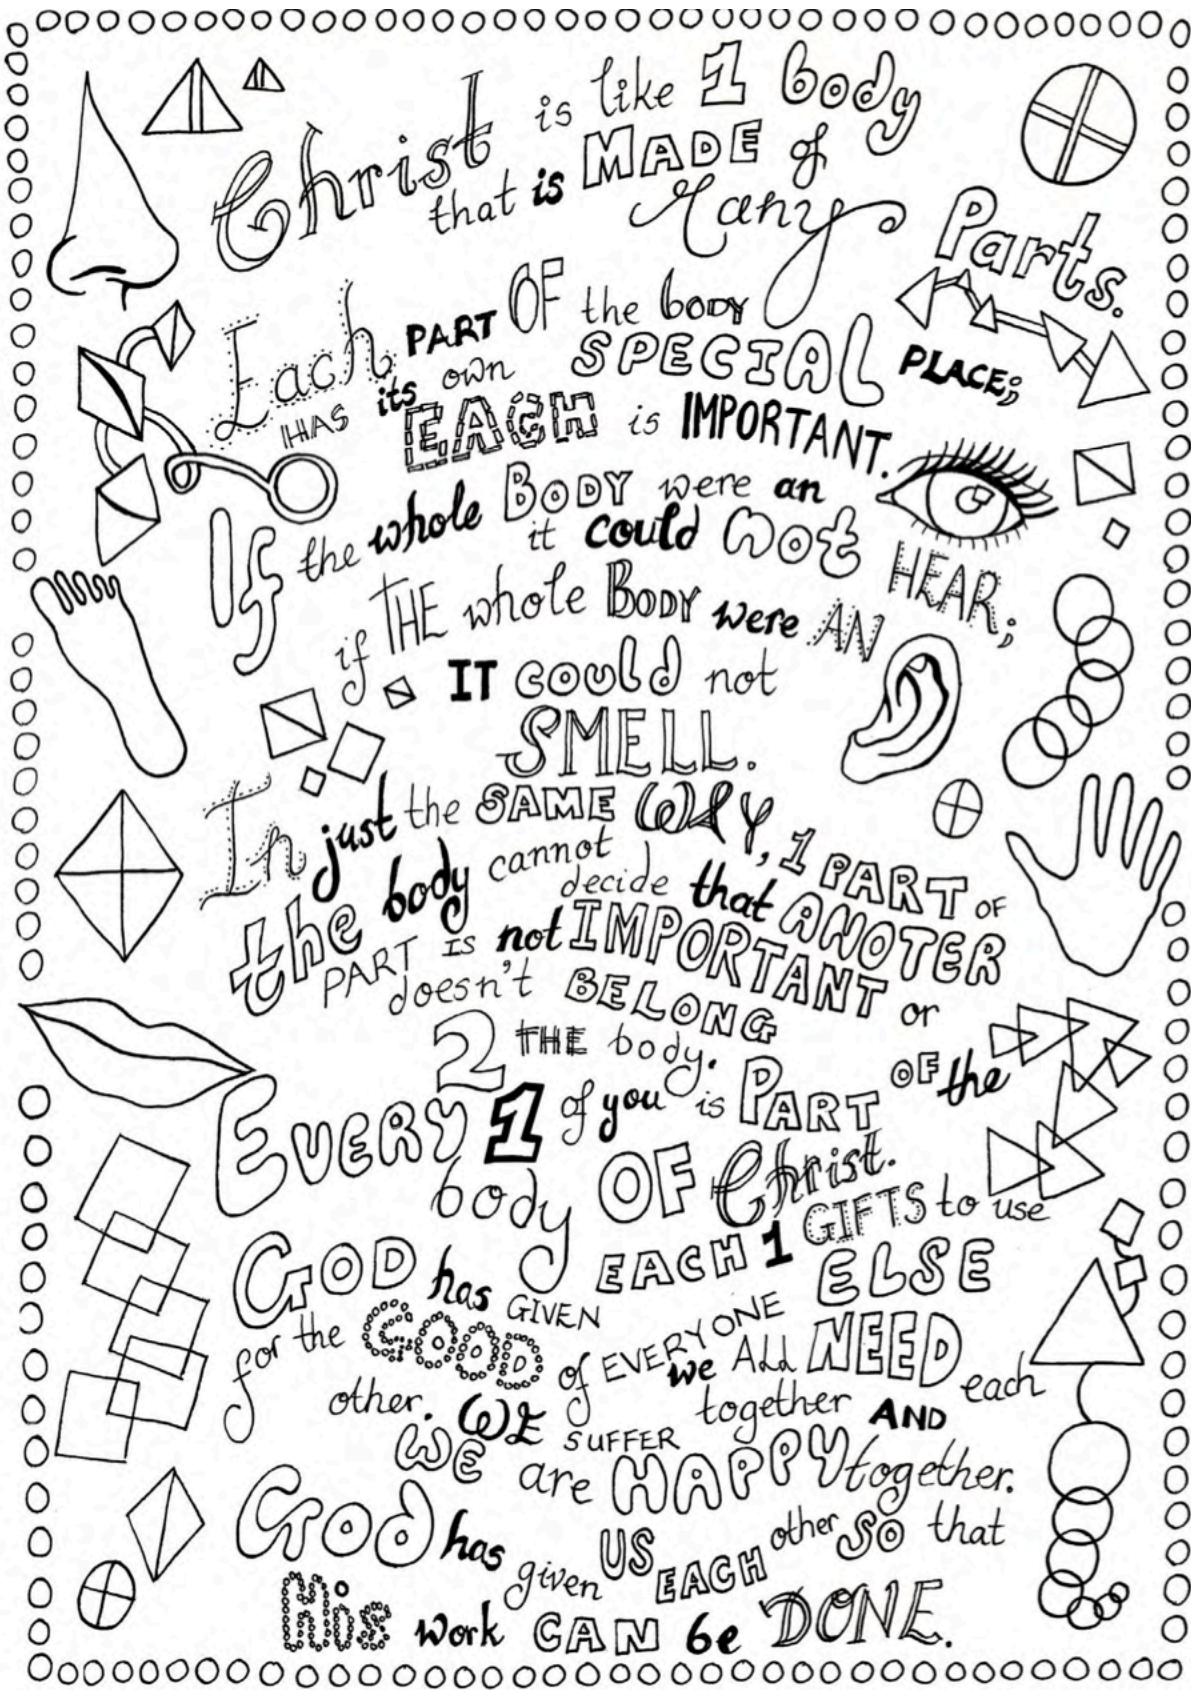 Christ is like 1 body
that is MADE of
Many Parts.
Each PART OF the body
HAS its own SPECIAL PLACE;
EACH is IMPORTANT.
If the whole BODY were an
it could not HEAR;
if THE whole BODY were AN
IT could not
SMELL.
In just the SAME WAY, 1 PART OF
the body cannot decide that ANOTER
PART IS not IMPORTANT or
doesn't BELONG
2 THE body.
EVERY 1 of you is PART OF the
body OF Christ.
GOD has GIVEN EACH 1 GIFTS to use
for the GOOD of EVERYONE ELSE
we All NEED each
other. WE SUFFER together AND
WE are HAPPY together.
God has given US EACH other SO that
His work CAN be DONE.